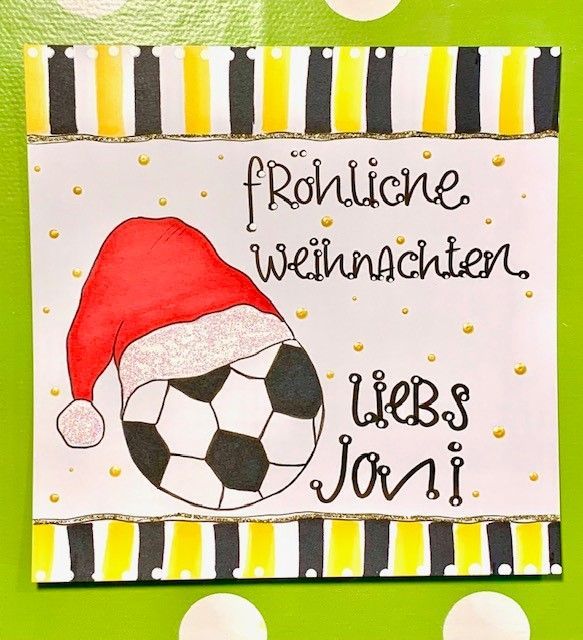 fRöhliche
weihnachten
liebs
Joni